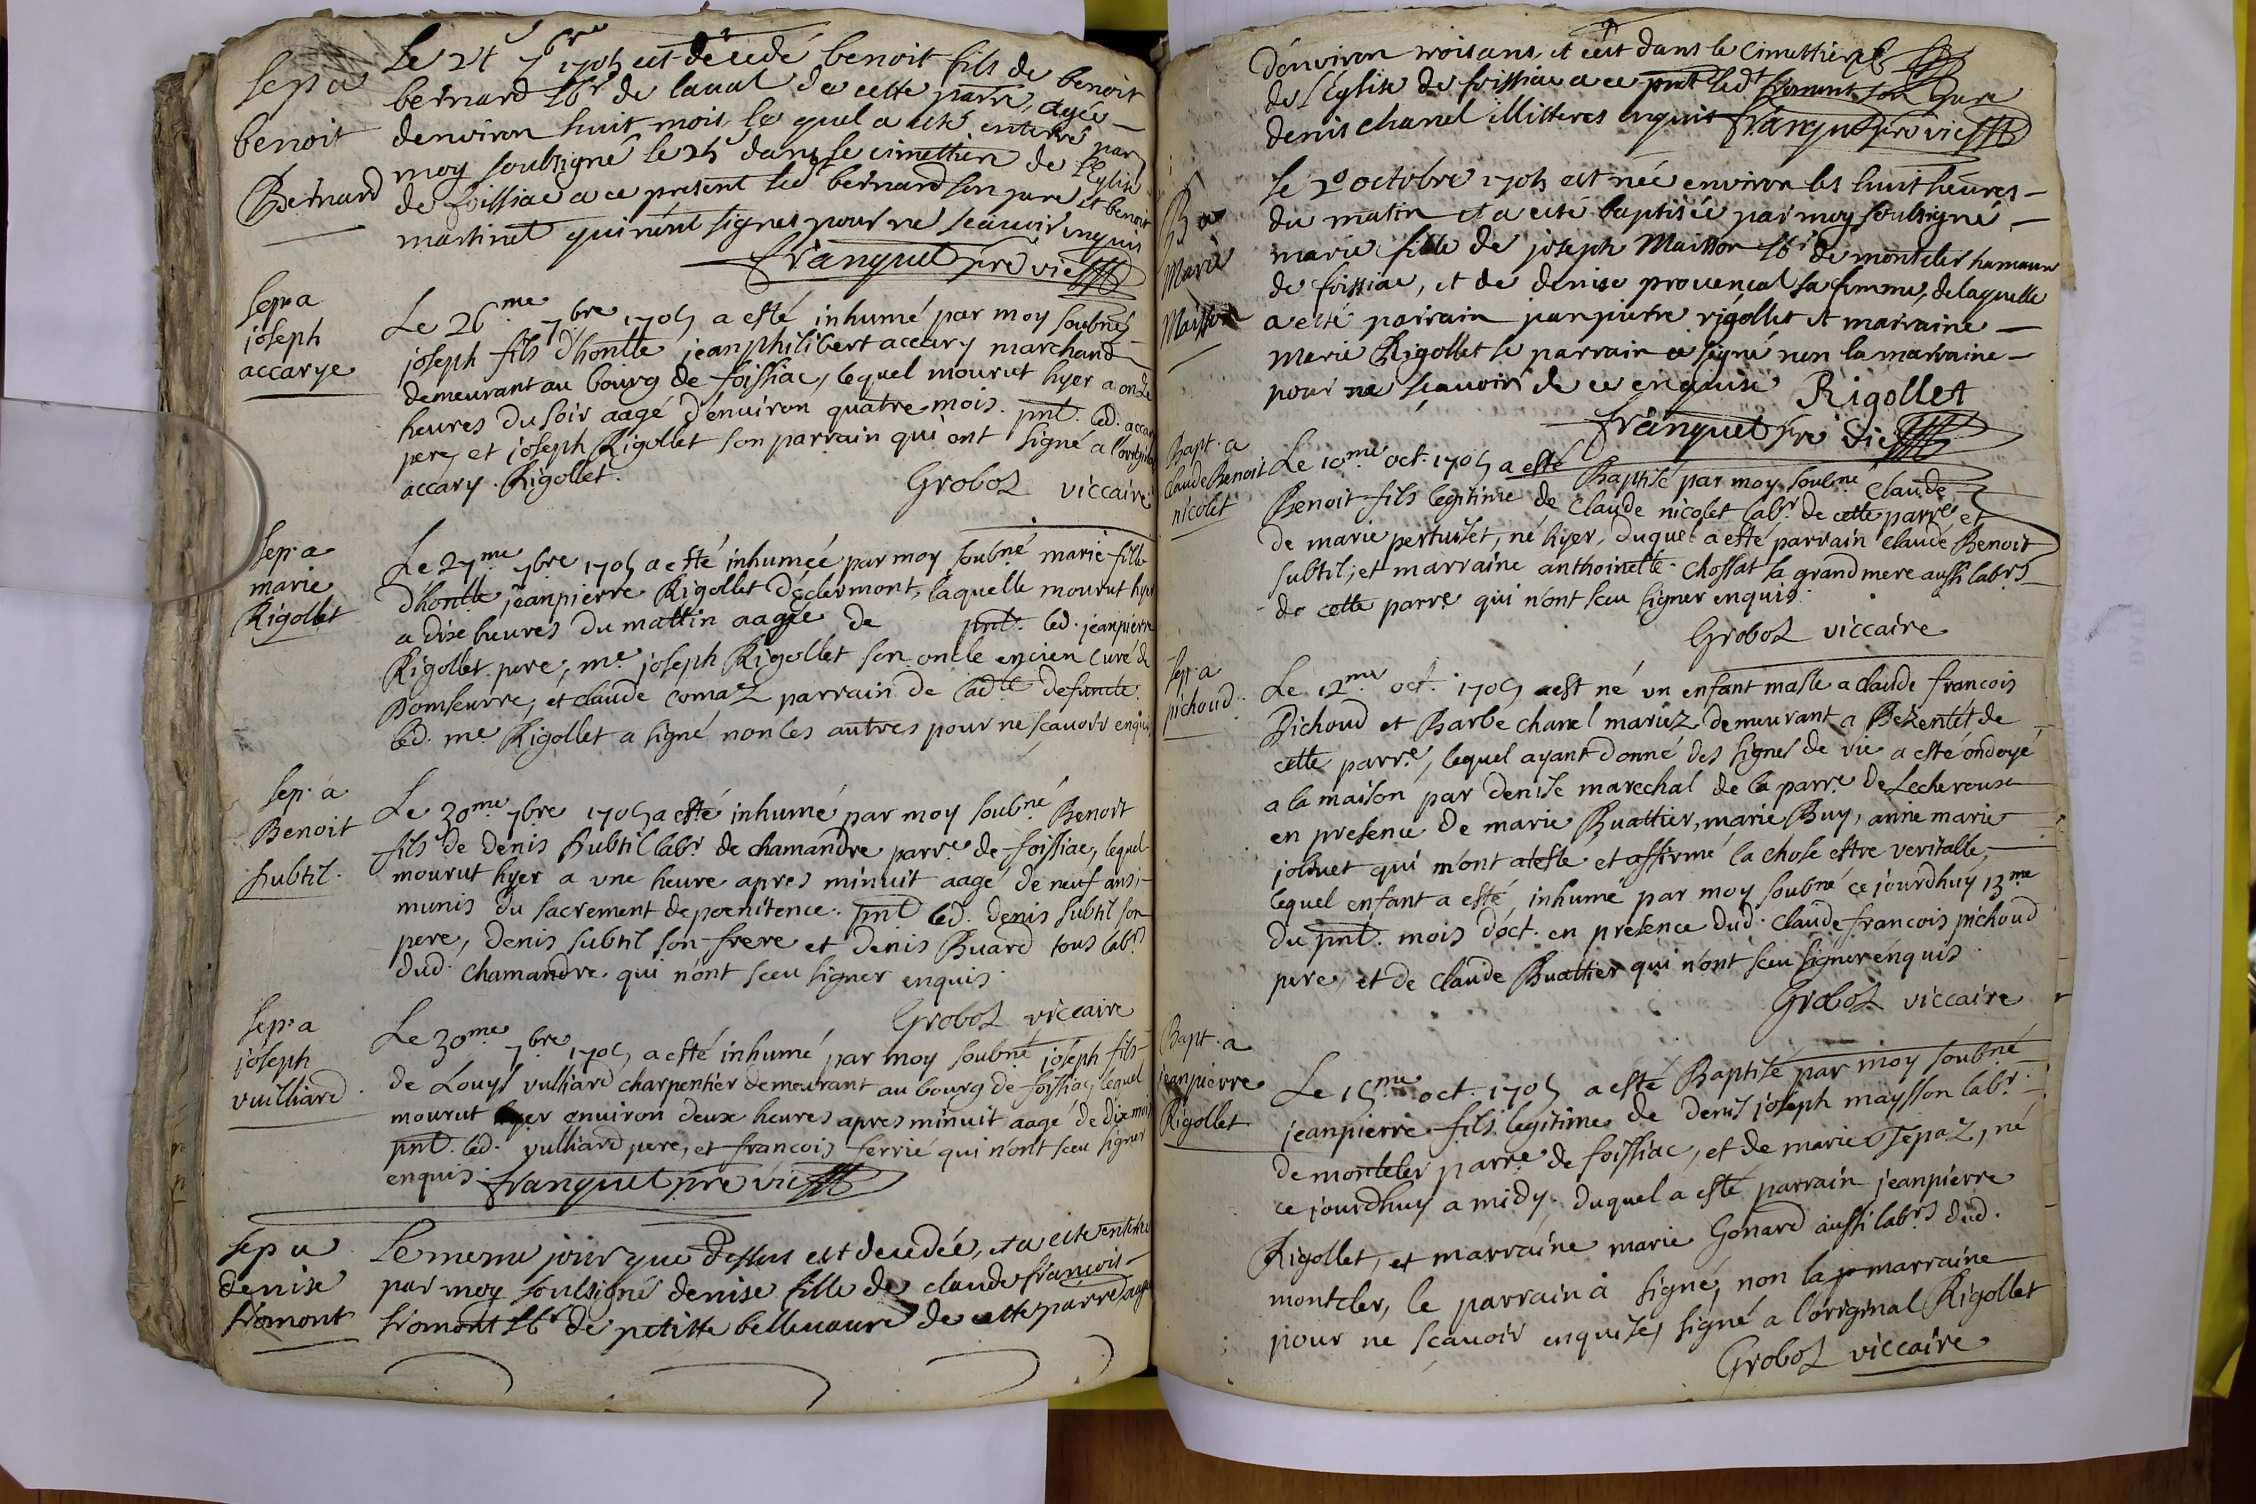 Sepa
benoit
Bernard
Le 24 7bre 1705 est décédé benoit fils de benoit
bernard lbr de laval de cette parre, agée
denviron huit mois le quel a esté enterré par
moy soubsigné le 25 dans le cimettiere de l'Eglise
de foissiac a ce present led bernard son pere et benoit
martinet qui n'ont signes pour ne scauoir enquis
franquet pre vic
Sepra
joseph
accarye
Le 26me 7bre 1705 a esté inhumé par moy soubné
joseph fils d'honlle jeanphilibert accary marchand
demeurant au bourg de foissiac, lequel mourut hyer a onze
heures du soir aagé d'enuiron quatre mois. pnt. led. accary
pere, et joseph Rigollet son parrain qui ont signé a l'original
accary. Rigollet.
Groboz viccaire
Sep: a
marie
Rigollet
Le 27me 7bre 1705 a esté inhumée par moy soubné marie fille
d'honlle jeanpierre Rigollet declermont, laquelle mourut hyer
a dix heures du mattin aagée de pnt. led. jeanpierre
Rigollet pere, me joseph Rigollet son oncle encien curé de
Domseurre, et claude comaz parrain de ladte defuncte
led. me Rigollet a signé non les autres pour ne scauoir enquis
Sep. a
Benoit
subtil.
Le 30me 7bre 1705 a esté inhumé par moy soubné Benoit
fils de denis Subtil labr de chamandre parre de foissiac, lequel
mourut hyer a vne heure apres minuit aagé de neuf ans
munis du sacrement de poenitence. pnt led. denis subtil son
pere, denis subtil son frere et denis Buard tous labrs
dud. chamandre qui n'ont sceu signer enquis.
Groboz viccaire
Sep: a
joseph
vuilliard
Le 30me 7bre 1705 a esté inhumé par moy soubné joseph fils
de Louys vulliard charpentier demeurant au bourg de foissiac, lequel
mourut hyer enuiron deux heures apres minuit aagé de dix mois
pnt. led. vulliard pere, et francois ferrié qui n'ont sceu signer
enquis. franquet pre vic
Sep a
denise
fromont
Le meme jour que dessus est decedée, et a esté enterré
par moy soubsigné denise fille de claude francois
fromont lbr de petitte belleuaure de cette parre agée
d'environ trois ans, et c'est dans le cimettiere
de l'Eglise de foissiac a ce pnt led fromont son pere
denis chanel illitteres enquis franquet pre vic
B a
Marie
Maisson
Le 2e octobre 1705 est née environ les huit heures
du matin et a esté baptisée par moy soubsigné
marie fille de joseph Maisson lbr de montcler hameau
de foissiac, et de denise prouençal sa femme, delaquelle
a esté parrain jeanpierre rigollet et marraine
Marie Rigollet le parrain a signé non la marraine
pour ne scauoir de ce enquise Rigollet
franquet pre vic
Bapt. a
Claude Benoit
nicolet
Le 10me oct. 1705 a esté Baptisé par moy soubné Claude
Benoit fils legitime de Claude nicolet labr de cette parre et
de marie pertuiset, né hyer, duquel a esté parrain claude Benoit
subtil, et marraine anthoinette chossat sa grandmere aussi labrs
de cette parre qui n'ont sceu signer enquis.
Groboz viccaire
Sep: a
pichoud.
Le 12me oct. 1705 est né un enfant masle a claude francois
Pichoud et Barbe chanel mariez demeurant a Bezentet de
cette parre, lequel ayant donné des signes de vie a esté ondoyé
a la maison par denise marechal de la parre de Lecheroux
en presence de marie Buattier, marie Buy, anne marie
joliuet qui m'ont atesté et affirmé la chose estre veritable,
lequel enfant a esté, inhumé par moy soubné ce jourdhuy 13me
du pnt. mois d'oct. en presence dud. claude francois pichoud
pere, et de claude Buattier qui n'ont sceu signer enquis.
Groboz viccaire
Bapt. a
jeanpierre
Rigollet
Le 15me oct. 1705 a esté Baptisé par moy soubné
jeanpierre fils legitime de denis joseph maysson labr.
de montcler parre de foissiac, et de marie Tepaz, né
ce jourdhuy a midy. duquel a esté parrain jeanpierre
Rigollet, et marraine marie Gonard aussi labrs dud.
montcler, le parrain a signé, non la marraine
pour ne scauoir enquise, signé a l'original Rigollet
Groboz viccaire